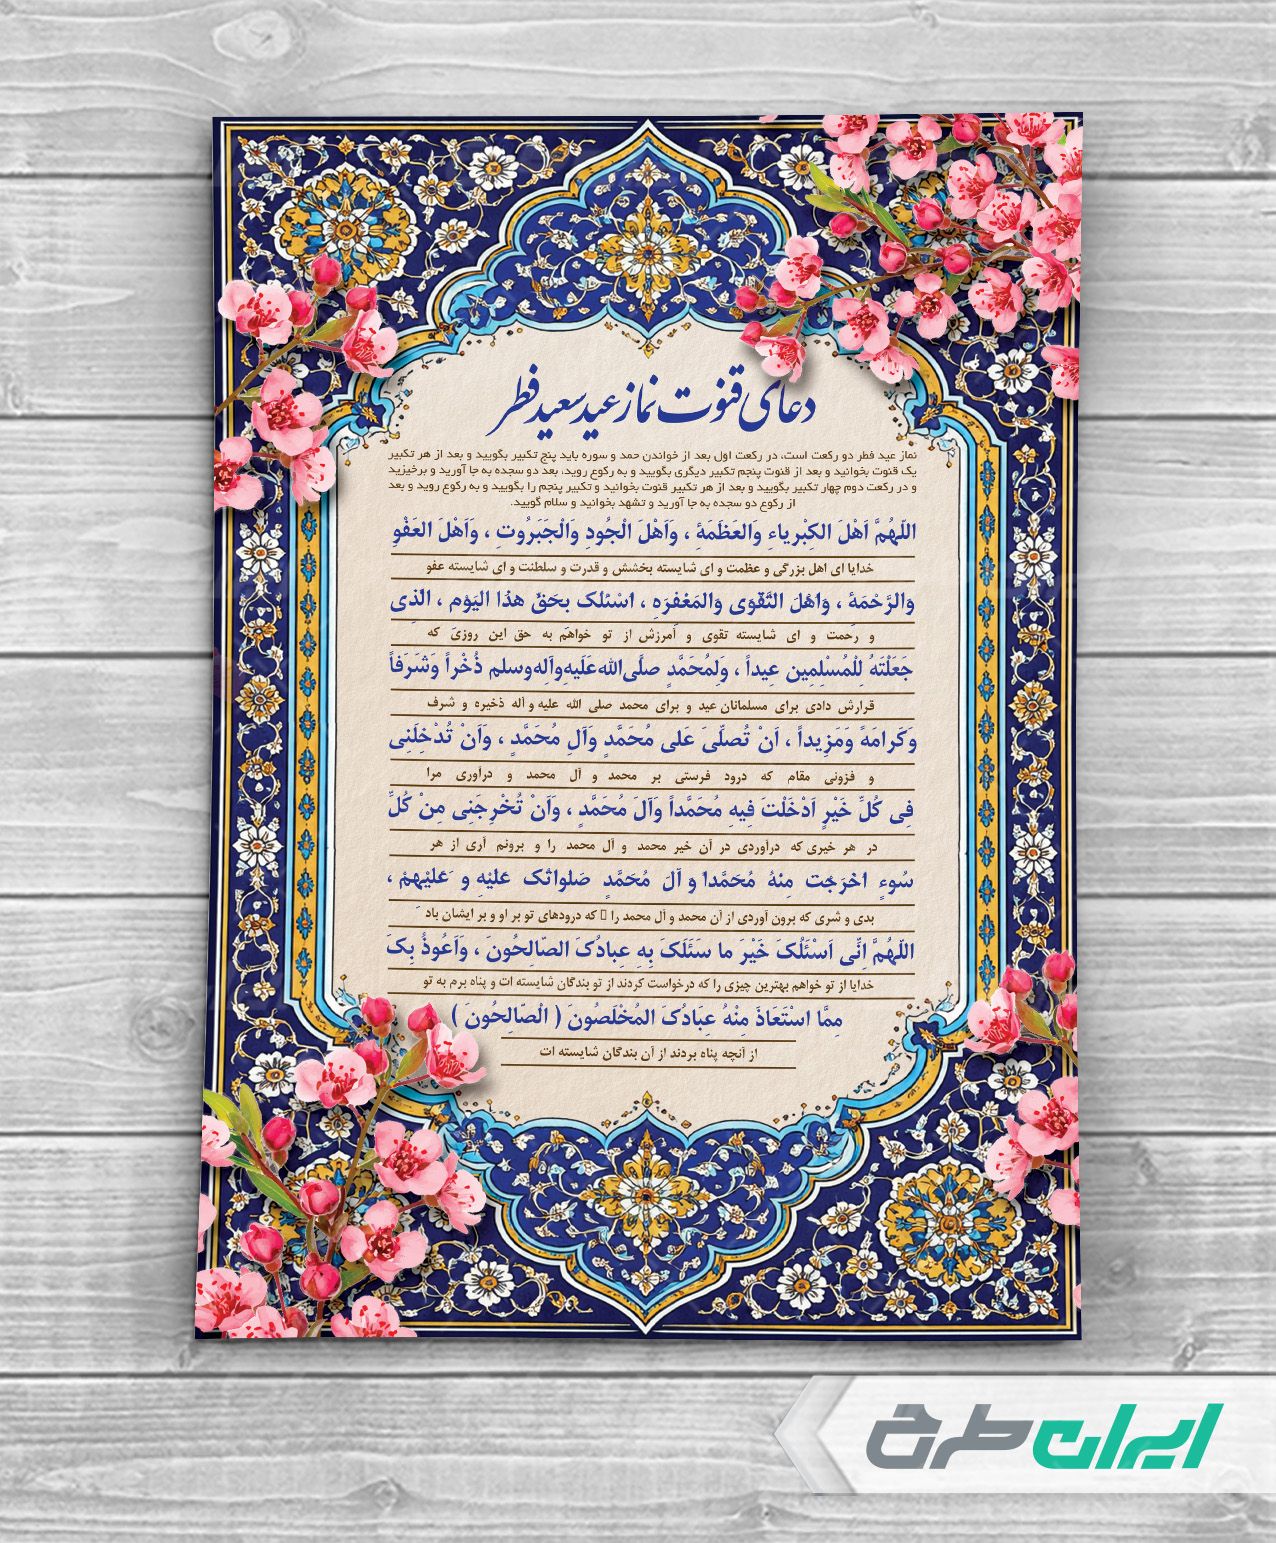 دعای قنوت نماز عید سعید فطر
نماز عید فطر دو رکعت است، در رکعت اول بعد از خواندن حمد و سوره باید پنج تکبیر بگویید و بعد از هر تکبیر
یک قنوت بخوانید و بعد از قنوت پنجم تکبیر دیگری بگویید و به رکوع روید، بعد دو سجده به جا آورید و برخیزید
و در رکعت دوم چهار تکبیر بگویید و بعد از هر تکبیر قنوت بخوانید و تکبیر پنجم را بگویید و به رکوع روید و بعد
از رکوع دو سجده به جا آورید و تشهد بخوانید و سلام گویید.
اللّهُمَّ اَهْلَ الکِبْریاءِ وَالعَظَمَةِ ، وَاَهْلَ الْجُودِ وَالْجَبَرُوتِ ، وَاَهْلَ العَفْوِ
خدایا ای اهل بزرگی و عظمت و ای شایسته بخشش و قدرت و سلطنت و ای شایسته عفو
وَالرَّحْمَةِ ، وَاهْلَ التَّقْوی وَالمَغْفِرَهِ ، اسْئلک بحَقّ هذَا الیَوْم ، الّذِی
و رحمت و ای شایسته تقوی و آمرزش از تو خواهم به حق این روزی که
جَعَلْتَهُ لِلْمُسْلِمِین عِیداً ، وَلِمُحَمَّدٍ صلَّی‌الله‌عَلَیهِ‌وآله‌وسلم ذُخْراً وَشَرَفاً
قرارش دادی برای مسلمانان عید و برای محمد صلی الله علیه و آله ذخیره و شرف
وَکَرامَةً وَمَزِیداً ، اَنْ تُصلِّیَ عَلی مُحَمَّدٍ وَآلِ مُحَمَّدٍ ، وَاَنْ تُدْخِلَنِی
و فزونی مقام که درود فرستی بر محمد و آل محمد و درآوری مرا
فِی کُلِّ خَیْرٍ اَدْخَلْتَ فِیهِ مُحَمَّداً وَآلَ مُحَمَّدٍ ، وَاَنْ تُخْرِجَنِی مِنْ کُلِّ
در هر خیری که درآوردی در آن خیر محمد و آل محمد را و برونم آری از هر
سُوءٍ اخْرَجَت مِنْهُ مُحَمَّدا و آلَ مُحَمَّدٍ صَلواتک عَلیْهِ و عَلیْهِمْ ،
بدی و شری که برون آوردی از آن محمد و آل محمد را ▯ که درودهای تو بر او و بر ایشان باد
اللّهُمَّ اِنِّی اَسْئَلُکَ خَیْرَ ما سَئَلَکَ بِهِ عِبادُکَ الصّالِحُونَ ، وَاَعُوذُ بِکَ
خدایا از تو خواهم بهترین چیزی را که درخواست کردند از تو بندگان شایسته ات و پناه برم به تو
مِمَّا اسْتَعَاذَ مِنْهُ عِبَادُکَ المُخْلَصُونَ ( الْصّالِحُونَ )
از آنچه پناه بردند از آن بندگان شایسته ات
ایران طرح